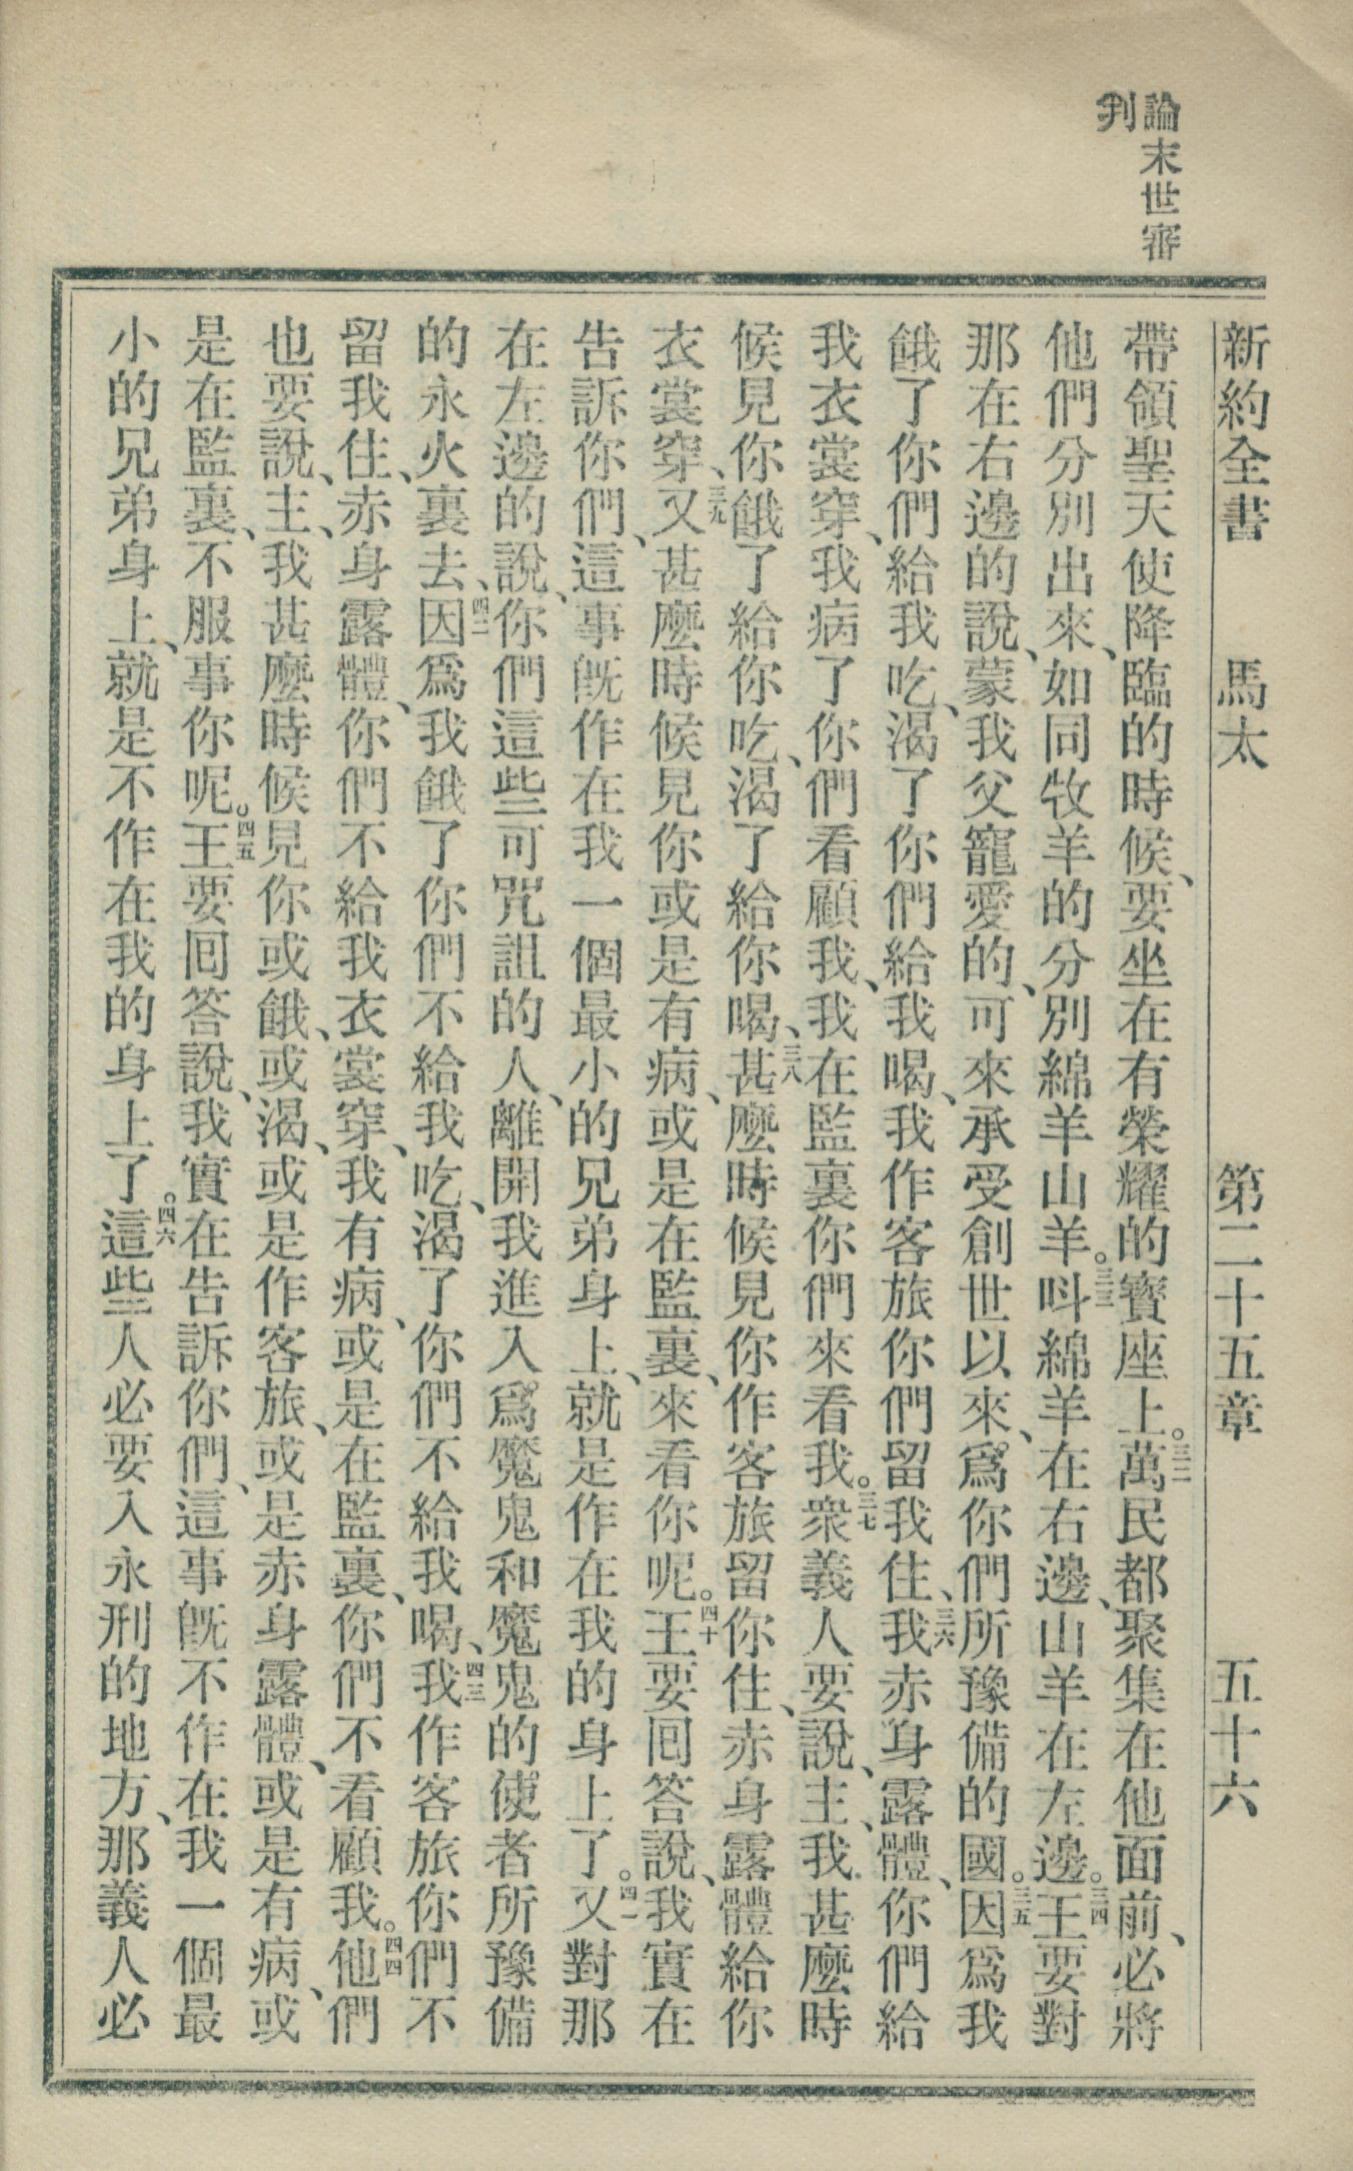 論末世審
判
新約全書 馬太 第二十五章 五十六
帶領聖天使降臨的時候、要坐在有榮耀的寶座上。三二萬民都聚集在他面前、必將
他們分別出來、如同牧羊的分別綿羊山羊。三三呌綿羊在右邊、山羊在左邊。三四王要對
那在右邊的說、蒙我父寵愛的、可來承受創世以來、爲你們所豫備的國。三五因爲我
餓了你們給我吃、渴了你們給我喝、我作客旅你們留我住、三六我赤身露體、你們給
我衣裳穿、我病了你們看顧我、我在監裏你們來看我。三七衆義人要說、主、我甚麼時
候見你餓了給你吃、渴了給你喝、三八甚麼時候見你作客旅留你住、赤身露體給你
衣裳穿、三九又甚麼時候見你或是有病、或是在監裏、來看你呢。四十王要囘答說、我實在
告訴你們、這事旣作在我一個最小的兄弟身上、就是作在我的身上了。四一又對那
在左邊的說、你們這些可咒詛的人、離開我進入爲魔鬼和魔鬼的使者所豫備
的永火裏去、四二因爲我餓了你們不給我吃、渴了你們不給我喝、四三我作客旅你們不
留我住、赤身露體、你們不給我衣裳穿、我有病、或是在監裏、你們不看顧我。四四他們
也要說、主、我甚麼時候見你或餓、或渴、或是作客旅、或是赤身露體、或是有病、或
是在監裏、不服事你呢。四五王要囘答說、我實在告訴你們、這事旣不作在我一個最
小的兄弟身上、就是不作在我的身上了。四六這些人必要入永刑的地方、那義人必